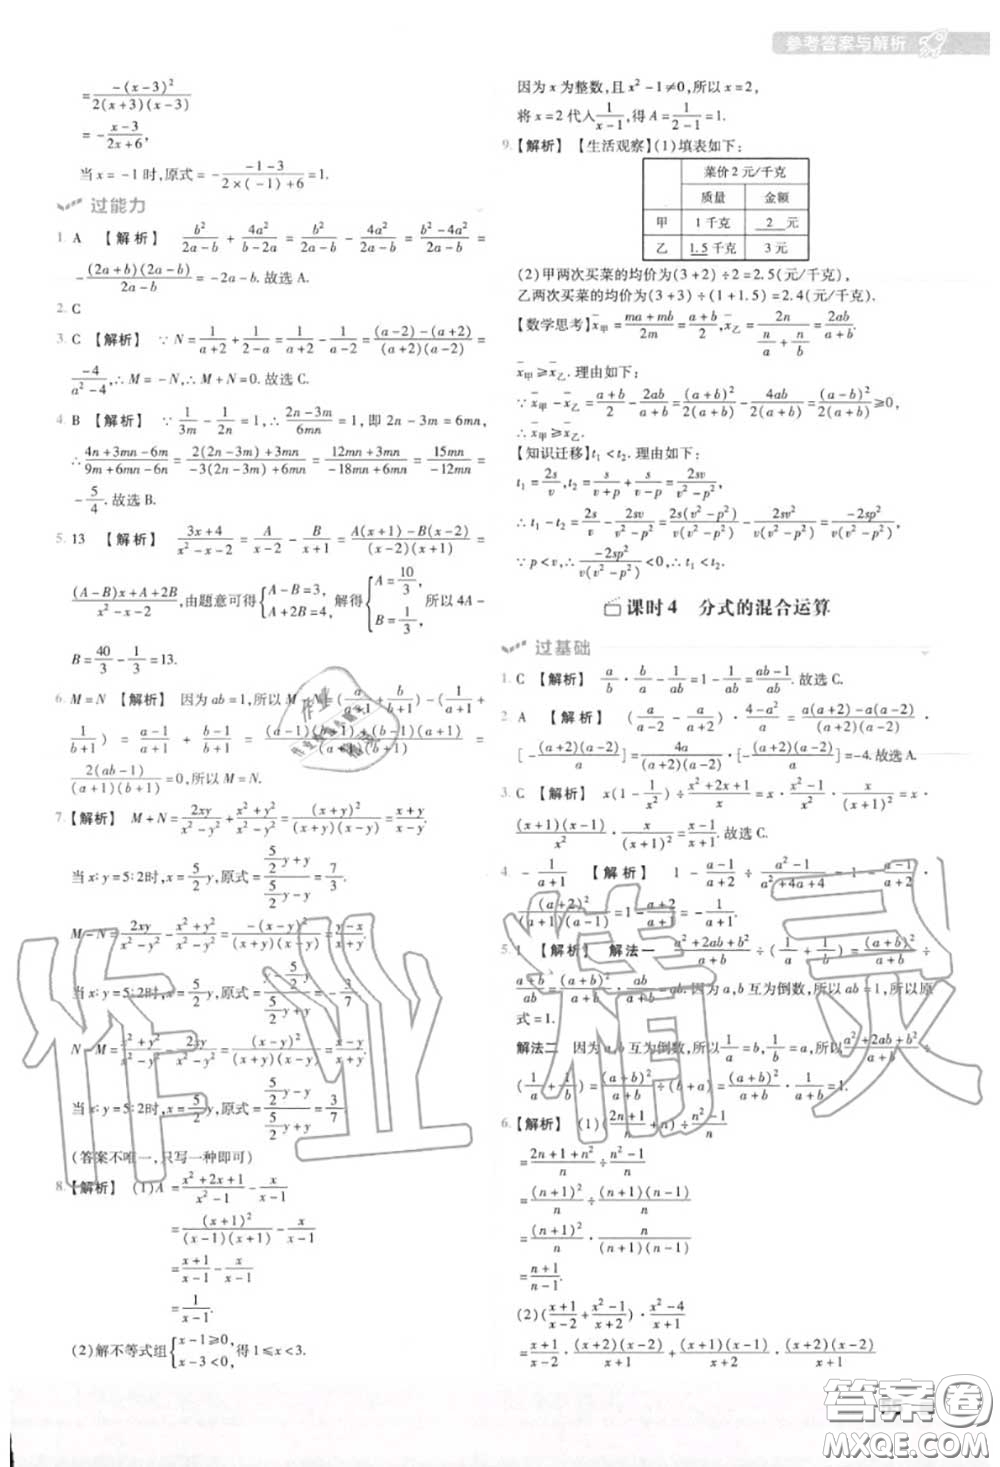 参考答案与解析
= \frac{-(x-3)^2}{2(x+3)(x-3)}
= -\frac{x-3}{2x+6},
当 x = -1 时,原式 = -\frac{-1-3}{2×(-1)+6} = 1.
过能力
1. A 【解析】 \frac{b^2}{2a-b} + \frac{4a^2}{b-2a} = \frac{b^2}{2a-b} - \frac{4a^2}{2a-b} = \frac{b^2-4a^2}{2a-b} =
-\frac{(2a+b)(2a-b)}{2a-b} = -2a-b. 故选 A.
2. C
3. C 【解析】 ∵ N = \frac{1}{a+2} + \frac{1}{2-a} = \frac{1}{a+2} - \frac{1}{a-2} = \frac{(a-2)-(a+2)}{(a+2)(a-2)} =
\frac{-4}{a^2-4}, ∴ M = -N, ∴ M+N = 0. 故选 C.
4. B 【解析】 ∵ \frac{1}{3m} - \frac{1}{2n} = 1, ∴ \frac{2n-3m}{6mn} = 1, 即 2n-3m = 6mn,
∴ \frac{4n+3mn-6m}{9m+6mn-6n} = \frac{2(2n-3m)+3mn}{-3(2n-3m)+6mn} = \frac{12mn+3mn}{-18mn+6mn} = \frac{15mn}{-12mn} =
-\frac{5}{4}. 故选 B.
5. 13 【解析】 \frac{3x+4}{x^2-x-2} = \frac{A}{x-2} - \frac{B}{x+1} = \frac{A(x+1)-B(x-2)}{(x-2)(x+1)} =
\frac{(A-B)x+A+2B}{x^2-x-2}, 由题意可得 {A-B=3, A+2B=4, 解得 {A=\frac{10}{3}, B=\frac{1}{3}, 所以 4A-
B = \frac{40}{3} - \frac{1}{3} = 13.
6. M=N 【解析】 因为 ab=1,所以 M-N = (\frac{a}{a+1} + \frac{b}{b+1}) - (\frac{1}{a+1} +
\frac{1}{b+1}) = \frac{a-1}{a+1} + \frac{b-1}{b+1} = \frac{(a-1)(b+1)+(b-1)(a+1)}{(a+1)(b+1)} =
\frac{2(ab-1)}{(a+1)(b+1)} = 0, 所以 M=N.
7. 【解析】 M+N = \frac{2xy}{x^2-y^2} + \frac{x^2+y^2}{x^2-y^2} = \frac{(x+y)^2}{(x+y)(x-y)} = \frac{x+y}{x-y}.
当 x:y=5:2时, x=\frac{5}{2}y, 原式 = \frac{\frac{5}{2}y+y}{\frac{5}{2}y-y} = \frac{7}{3}.
M-N = \frac{2xy}{x^2-y^2} - \frac{x^2+y^2}{x^2-y^2} = \frac{-(x-y)^2}{(x+y)(x-y)} = -\frac{x-y}{x+y}.
当 x:y=5:2时, x=\frac{5}{2}y, 原式 = -\frac{\frac{5}{2}y-y}{\frac{5}{2}y+y} = -\frac{3}{7}.
N-M = \frac{x^2+y^2}{x^2-y^2} - \frac{2xy}{x^2-y^2} = \frac{(x-y)^2}{(x+y)(x-y)} = \frac{x-y}{x+y}.
当 x:y=5:2时, x=\frac{5}{2}y, 原式 = \frac{\frac{5}{2}y-y}{\frac{5}{2}y+y} = \frac{3}{7}
(答案不唯一,只写一种即可)
8. 【解析】 (1)A = \frac{x^2+2x+1}{x^2-1} - \frac{x}{x-1}
= \frac{(x+1)^2}{(x-1)(x+1)} - \frac{x}{x-1}
= \frac{x+1}{x-1} - \frac{x}{x-1}
= \frac{1}{x-1}.
(2)解不等式组 {x-1≥0, x-3<0, 得 1≤x<3.
因为 x 为整数,且 x^2-1≠0,所以 x=2,
将 x=2 代入 \frac{1}{x-1}, 得 A = \frac{1}{2-1} = 1.
9. 【解析】 【生活观察】(1)填表如下:
菜价 2 元/千克
质量 金额
甲 1 千克 2 元
乙 1.5 千克 3 元
(2)甲两次买菜的均价为(3+2)÷2=2.5(元/千克),
乙两次买菜的均价为(3+3)÷(1+1.5)=2.4(元/千克).
【数学思考】\overline{x}_甲 = \frac{ma+mb}{2m} = \frac{a+b}{2}, \overline{x}_乙 = \frac{2n}{\frac{n}{a}+\frac{n}{b}} = \frac{2ab}{a+b}.
\overline{x}_甲 ≥ \overline{x}_乙. 理由如下:
∵ \overline{x}_甲 - \overline{x}_乙 = \frac{a+b}{2} - \frac{2ab}{a+b} = \frac{(a+b)^2}{2(a+b)} - \frac{4ab}{2(a+b)} = \frac{(a-b)^2}{2(a+b)} ≥0,
∴ \overline{x}_甲 ≥ \overline{x}_乙.
【知识迁移】t_1 < t_2. 理由如下:
t_1 = \frac{2s}{v}, t_2 = \frac{s}{v+p} + \frac{s}{v-p} = \frac{2sv}{v^2-p^2},
∴ t_1-t_2 = \frac{2s}{v} - \frac{2sv}{v^2-p^2} = \frac{2s(v^2-p^2)}{v(v^2-p^2)} - \frac{2sv^2}{v(v^2-p^2)} = \frac{-2sp^2}{v(v^2-p^2)}.
∵ p<v, ∴ \frac{-2sp^2}{v(v^2-p^2)} <0, ∴ t_1 < t_2.
课时 4 分式的混合运算
过基础
1. C 【解析】 \frac{a}{b} · \frac{a}{b} - \frac{1}{a} ÷ \frac{a}{b} = 1 - \frac{1}{ab} = \frac{ab-1}{ab}. 故选 C.
2 A 【解析】 (\frac{a}{a-2} - \frac{a}{a+2}) · \frac{4-a^2}{a} = \frac{a(a+2)-a(a-2)}{(a+2)(a-2)} ·
[-\frac{(a+2)(a-2)}{a}] = \frac{4a}{(a+2)(a-2)} · [-\frac{(a+2)(a-2)}{a}] = -4. 故选 A.
3. C 【解析】 x(1-\frac{1}{x^2}) ÷ \frac{x+1}{x} = x · \frac{x^2-1}{x^2} · \frac{x}{x+1} = x ·
\frac{(x+1)(x-1)}{x^2} · \frac{x}{(x+1)} = \frac{x-1}{x+1}. 故选 C.
4 -\frac{1}{a+1} 【解析】 1 - \frac{a-1}{a+2} ÷ \frac{a^2-1}{a^2+4a+4} = 1 - \frac{a-1}{a+2} ·
\frac{(a+2)^2}{(a+1)(a-1)} = 1 - \frac{a+2}{a+1} = -\frac{1}{a+1}.
5. 1 【解析】 解法一 \frac{a^2+2ab+b^2}{a+b} ÷ (\frac{1}{a}+\frac{1}{b}) = \frac{(a+b)^2}{a+b} ÷
\frac{a+b}{ab} = \frac{(a+b)^2}{a+b} · \frac{ab}{a+b} = ab. 因为 a,b 互为倒数,所以 ab=1,所以原
式=1.
解法二 因为 a,b 互为倒数,所以 \frac{1}{a}=b, \frac{1}{b}=a,所以 \frac{a^2+2ab+b^2}{a+b} ÷
(\frac{1}{a}+\frac{1}{b}) = \frac{(a+b)^2}{a+b} ÷ (b+a) = \frac{(a+b)^2}{a+b} · \frac{1}{a+b} = 1.
6. 【解析】 (1)(\frac{2n+1}{n}+n) ÷ \frac{n^2-1}{n}
= \frac{2n+1+n^2}{n} ÷ \frac{n^2-1}{n}
= \frac{(n+1)^2}{n} · \frac{n}{n^2-1}
= \frac{(n+1)^2}{n} · \frac{n}{(n+1)(n-1)}
= \frac{n+1}{n-1}.
(2)(\frac{x+1}{x-2} + \frac{x^2-1}{x+2}) · \frac{x^2-4}{x+1}
= \frac{x+1}{x-2} · \frac{(x+2)(x-2)}{x+1} + \frac{(x+1)(x-1)}{x+2} · \frac{(x+2)(x-2)}{x+1}
作业精灵
答案卷
MXQE.COM